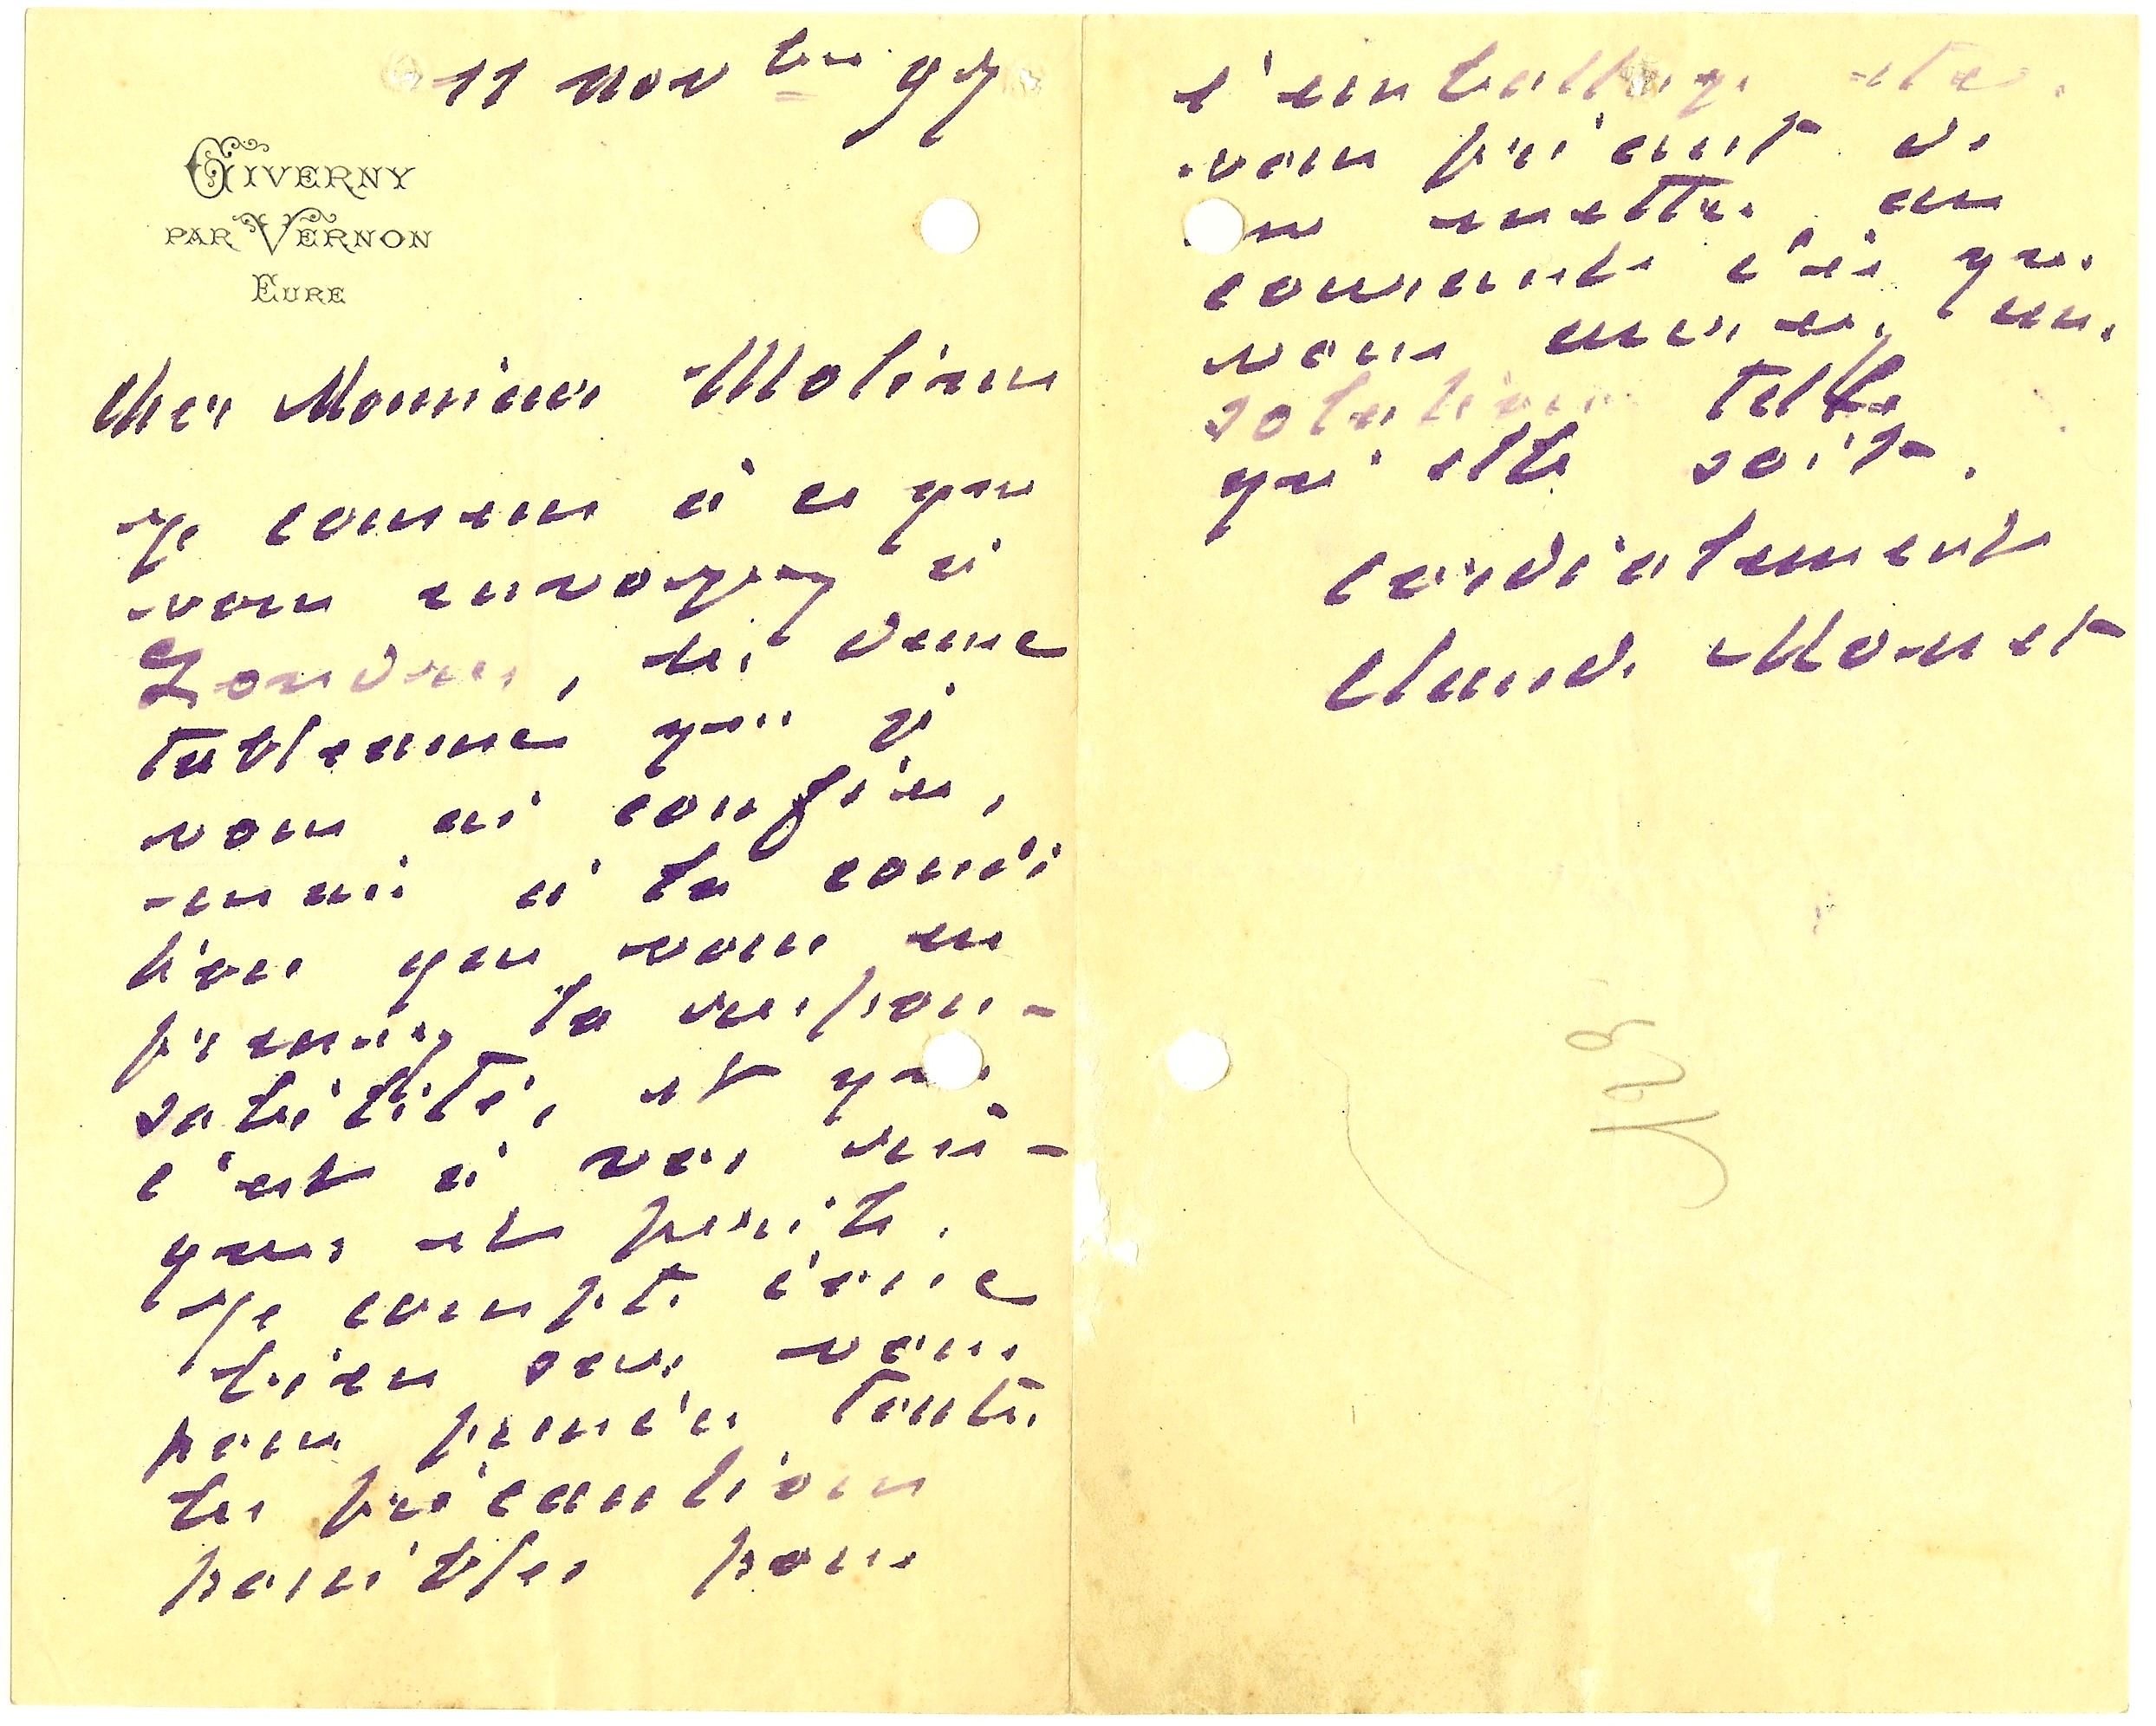 11 novbre 97
GIVERNY
PAR VERNON
EURE
Cher Monsieur Moline
Je consens à ce que
vous envoyez à
Londres, les deux
tableaux que je
vous ai confiés,
mais à la condi
tion que vous en
prenez la respon-
sabilité, et que
c'est à vos ris-
ques et périls.
Je compte donc
bien sur vous
pour prendre toutes
les précautions
possibles pour
l'emballage etc.
vous priant de
me mettre au
courant dès que
vous aurez une
solution telle
qu'elle soit.
Cordialement
Claude Monet